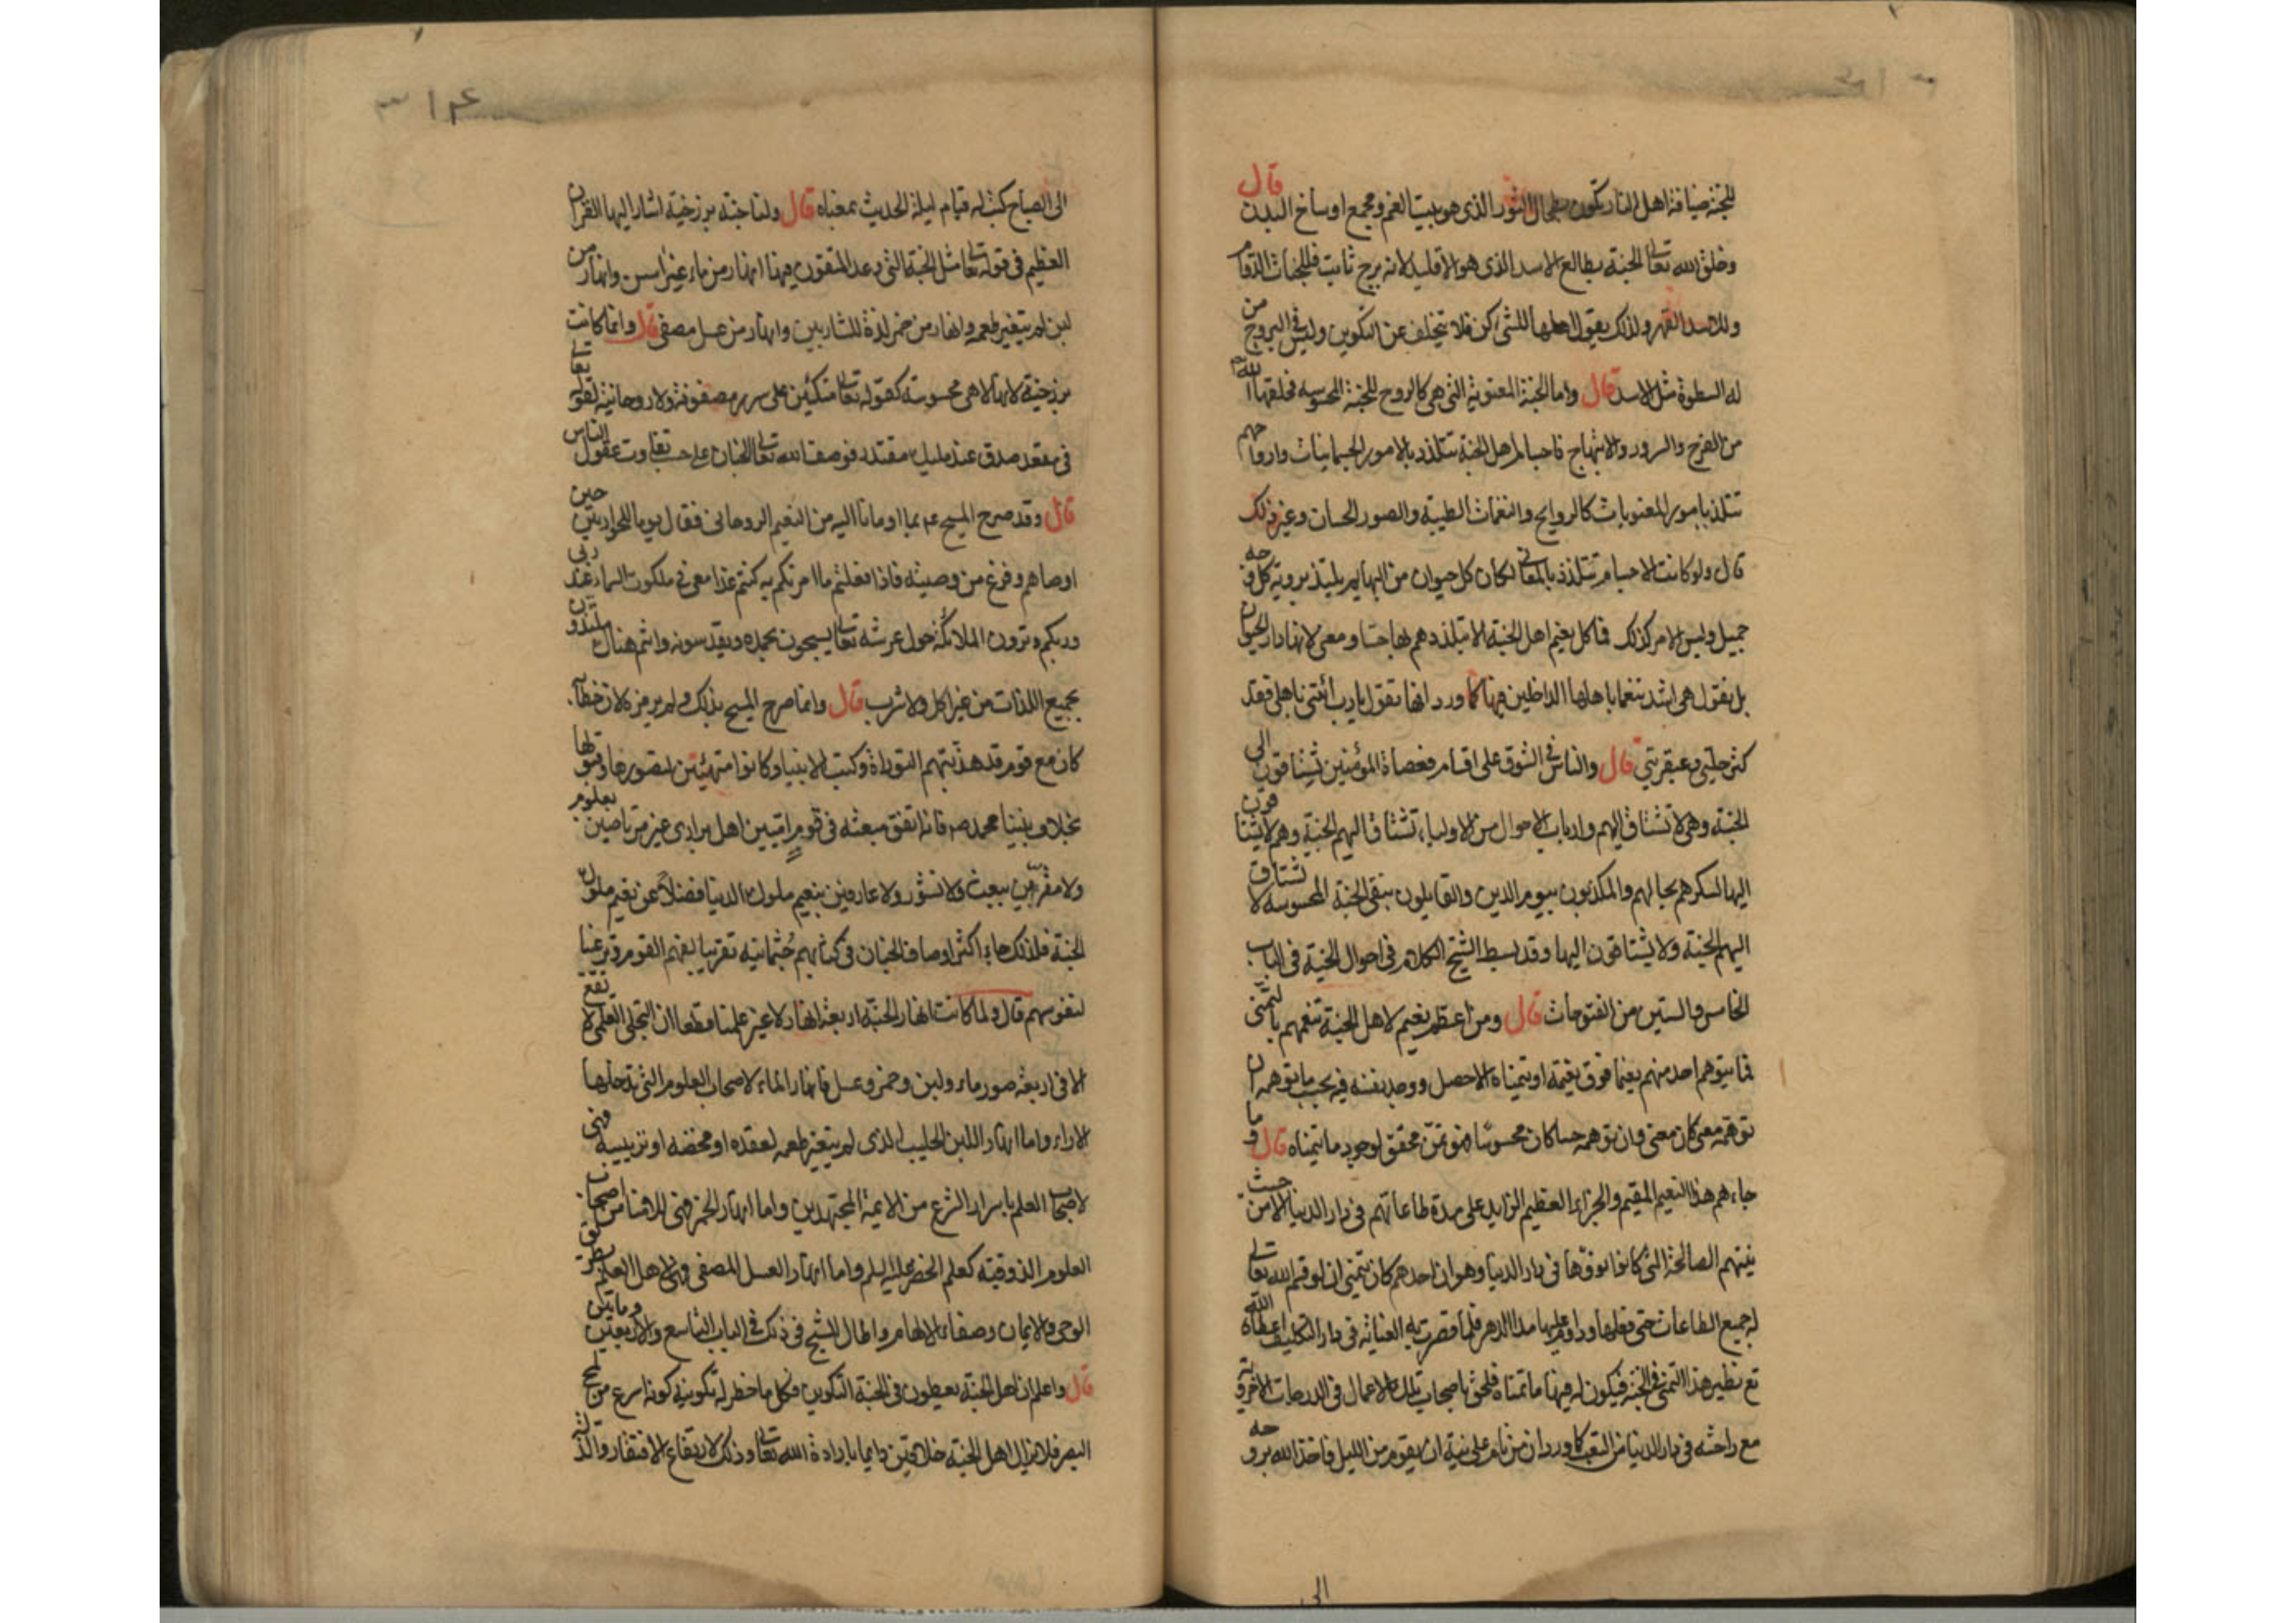 ٣١٣
للجنة ضيافة اهل النار تكون بطحال الثور الذى هو بيت الغم ومجمع اوساخ البدن قال
وخلق الله تعالى الجنة بطالع الاسد الذى هو الاقليد لانه برج ثابت فللجنات الدوام
وللاسد القهر ولذلك يقول اهلها للشئ كن فلا يتخلف عن التكوين وليس فى البروج من
له السطوة مثل الاسد قال واما الجنة المعنوية التى هى كالروح للجنة المحسوسه فخلقها الله
من الفرح والسرور والابتهاج فاجسام اهل الجنة تتلذذ بالامور الجسمانيات وارواحهم
تتلذذ بامور المعنويات كالروايح والنغمات الطيبة والصور الحسان وغير ذلك
قال ولو كانت الاجسام تتلذذ بالمعانى لكان كل حيوان من البهايم يلتذ بروية كل وجه
جميل وليس الامر كذلك فما كل نعيم اهل الجنة الا يتلذذهم بها حسا ومعنى لانها دار الحيوان
بل نقول هى اشد تنعما باهلها الداخلين فيها كما ورد انها تقول يا رب ائتنى باهلى فقد
كثر حليى وعبقريتي قال والناس فى الشوق على اقسام فعصاة المؤمنين يشتاقون الى
الجنة وهى لا تشتاق اليهم وارباب الاحوال من الاولياء تشتاق اليهم الجنة وهم لا يشتاقون
اليها لسكرهم بحالهم والمكذبون بيوم الدين والقايلون بنفى الجنة المحسوسه لا تشتاق
اليهم الجنة ولا يشتاقون اليها وقد بسط الشيخ الكلام فى احوال الجنة فى الباب
الخامس والستين من الفتوحات قال ومن اعظم نعيم لاهل الجنة تنعمهم بالتمنى
فما يتوهم احد منهم نعيما فوق نعيمه او يتمناه الا حصل ووجد نفسه فيه بحسب ما توهمه ان
توهمه معنى كان معنى وان توهمه حسا كان محسوسا فهو تمن محقق لوجود ما يتمناه قال وما
جاءهم هذا النعيم المقيم والجزاء العظيم الزايد على مدة طاعاتهم فى دار الدنيا الا من حيث
نيتهم الصالحة التى كانوا نووها فى دار الدنيا وهو ان احدهم كان يتمنى ان لو قسم الله تعالى
له جميع الطاعات حتى فعلها وداوم عليها مدا الدهر فلما قصرت به العناية فى دار التكليف اعطاه الله
تع نظير هذا التمنى فى الجنة فيكون له فيها ما تمناه فلحق باصحاب تلك الاعمال فى الدرجات الاخروية
مع راحته فى دار الدنيا من التعب كما ورد ان من نام على نية ان يقوم من الليل فاخذ الله بروحه
الى
٣١٤
الى الصباح كتب له قيام ليلة الحديث بمعناه قال ولنا جنة برزخية اشار اليها القران
العظيم فى قوله تعالى مثل الجنة التى وعد المتقون فيها انهار من ماء غير اسن وانهار من
لبن لم يتغير طعمه وانهار من خمر لذة للشاربين وانهار من عسل مصفى قال وانما كانت
برزخية لانها لا هى محسوسة كقوله تعالى متكئين على سرر مصفوفة ولا روحانية لقوله تعالى
فى مقعد صدق عند مليك مقتدر فوصف الله تعالى الجنان على حسب تفاوت عقول الناس
قال وقد صرح المسيح عم بما اومانا اليه من النعيم الروحانى فقال يوما للحواريين حين
اوصاهم وفرغ من وصيته فاذا فعلتم ما امرتكم به كنتم غدا معى فى ملكوت السماء عند ربى
وربكم وترون الملائكة حول عرشه تعالى يسبحون بحمده ويقدسونه وانتم هناك ملتذون
بجميع اللذات من غير اكل ولا شرب قال وانما صرح المسيح بذلك ولم يرمز لان خطابه
كان مع قوم قد هذبتهم التوراة وكتب الانبيا وكانوا متهيئين لتصورها وقبولها
بخلاف نبينا محمد صم فانه اتفق مبعثه فى قوم اميين اهل برارى غير مرتاضين بعلوم
ولا مقرين ببعث ولا نشور ولا عارفين بنعيم ملوك الدنيا فضلا عن نعيم ملوك
الجنة فلذلك جاء اكثر اوصاف الجنان فى كتابهم جثمانية تقريبا لفهم القوم وترغيبا
لنفوسهم قال ولما كانت انهار الجنة اربعة انهار لا غير علمنا قطعا ان التجلى العلمى لا يقع
الا فى اربعة صور ماء ولبن وخمر وعسل فانهار الماء لاصحاب العلوم التى تدخلها
الاراء واما انهار اللبن الحليب الذى لم يتغير طعمه لعقده او مخضه او تزبيبه فهى
لاصحاب العلم باسرار الشرع من الايمة المجتهدين واما انهار الخمر فهى للامنا من اصحاب
العلوم الذوقية كعلم الخضر عليه السلم واما انهار العسل المصفى فهى لاهل العلم بطريق
الوحى والايمان وصفاء الالهام واطال الشيخ فى ذلك فى الباب التاسع والاربعين وماتين
قال واعلم ان اهل الجنة يعطون فى الجنة التكوين فكل ما خطر له تكوينه كونه اسرع من لمح
البصر فلا يزال اهل الجنة خلاقين دايما بارادة الله تعالى وذلك لارتفاع الافتقار والذل